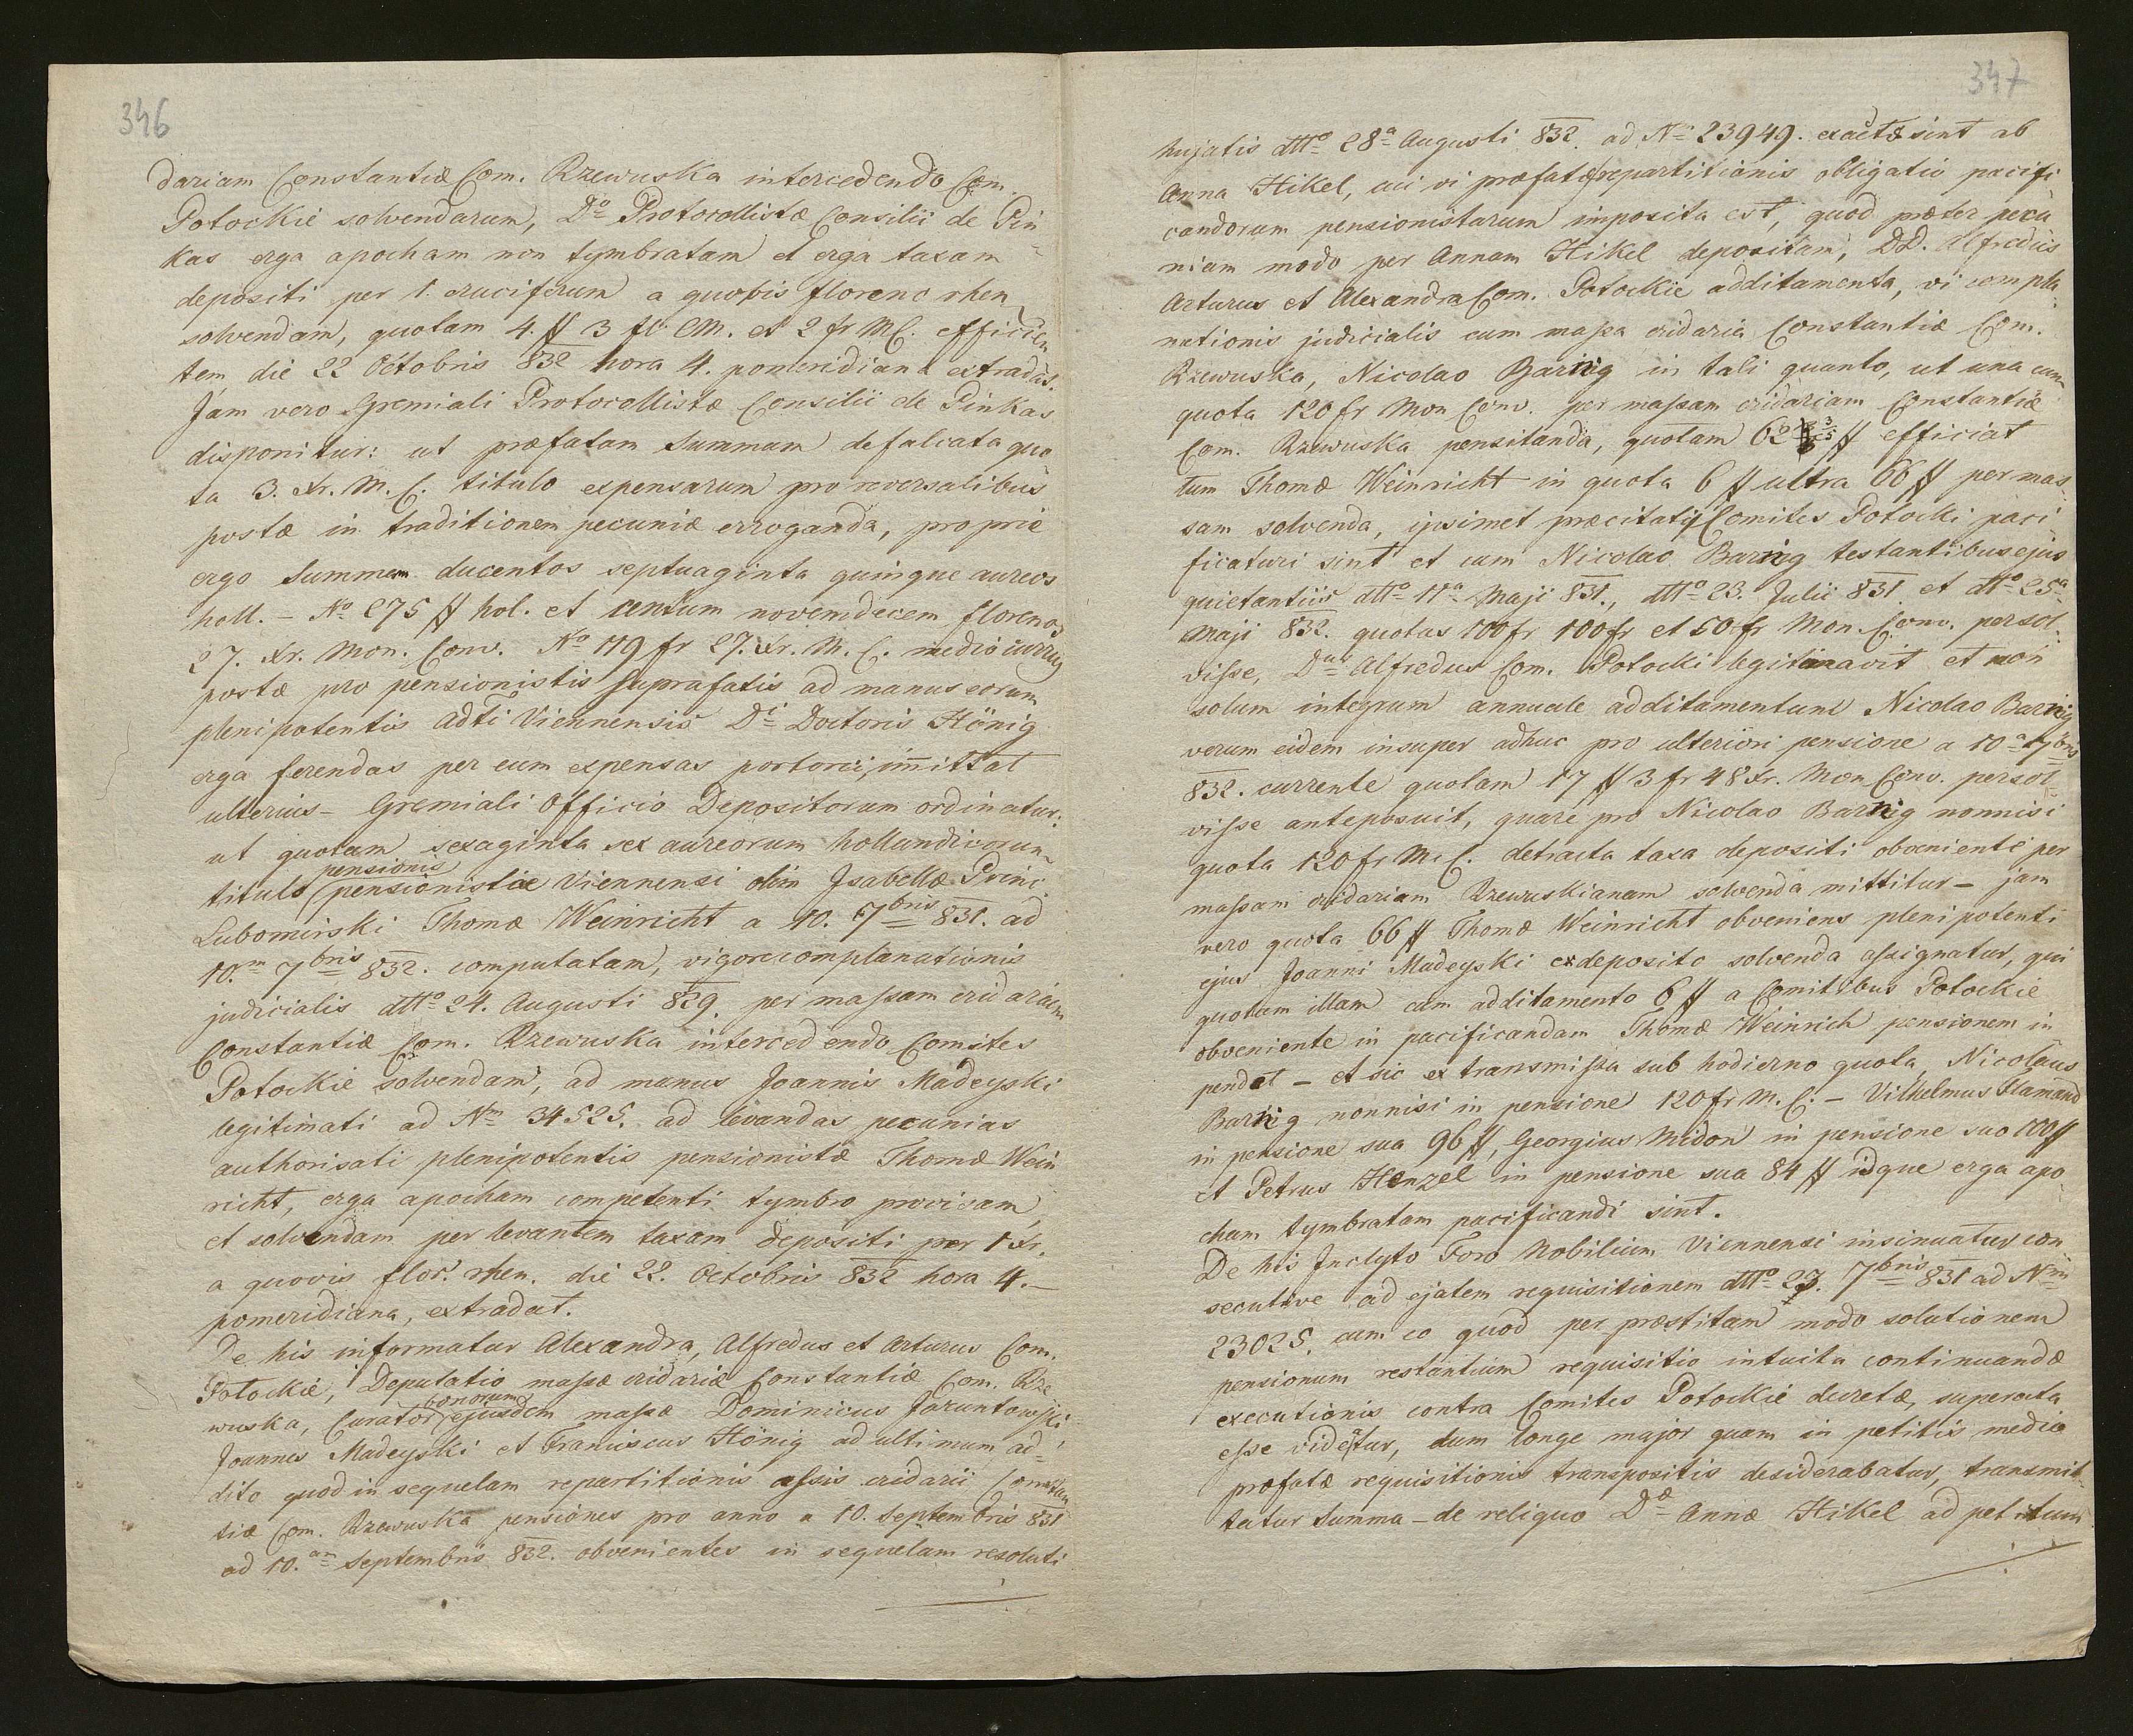 346
dariam Constantiæ Com. Rzewuska intercedendo Com.
Potockie solvendarum, Dº Protocollistæ Consilii de Pin
kas erga apocham non tymbratam et erga taxam
depositi per 1. cruciferum a quovis floreno rhen
solvendam, quotam 4. ff 3 fr CM. et 2 fr M C. efficien
tem die 22 Octobris 832 hora 4. pomeridiana extradat.
Jam vero Gremiali Protocollistæ Consilii de Pinkas
disponitur: ut præfatam Summam defalcata quo
ta 3. Xr. M. C. titulo expensarum pro reversalibus
postæ in traditionem pecuniæ erroganda, proprie
ergo Summam ducentos septuaginta quinque aureos
holl. – Nº 275 ff hol. et centum novemdecem florenos
27. Xr. Mon. Conv. Nº 119 fr 27. Xr. M. C. medio currus
postæ pro pensionistis suprafatis ad manus eorum
plenipotentis Adti Viennensis Di Doctoris Hönig
erga ferendas per eum expensas portorii, immittat
ulterius – Gremiali Officio Depositorum ordinatur:
ut quotam sexaginta sex aureorum hollandicorum
pensionis
titulo pensionistæ Viennensi olim Isabellæ Princ.
Lubomirski Thomæ Weinricht a 10. 7bris 831. ad
10.m 7bris 832. computatam, vigore complanationis
judicialis dttº 24. Augusti 829. per massam cridariam
Constantiæ Com. Rzewuska intercedendo Comites
Potockie solvendam, ad manus Joannis Madeyski
legitimati ad Nm 34525. ad levandas pecunias
authorisati plenipotentis pensionistæ Thomæ Wein
richt, erga apocham competenti tymbro provisam
et solvendam per levantem taxam depositi per 1 Xr.
a quovis flor. rhen. die 22. Octobris 832 hora 4.–
pomeridiana, extradat.
De his informatur Alexandra, Alfredus et Arturus Com.
Potockie, Deputatio massæ cridariæ Constantiæ Com. Rze
bonorum
wuska, Curator ejusdem massæ Dominicus Jaruntowski
Joannes Madeyski et Franciscus Hönig ad ultimum ad-
dito quod in sequelam repartitionis assis cridarii Constan
tiæ Com. Rzewuska pensiones pro anno a 10. Septembris 831
ad 10.am Septembris 832. obvenientes in sequelam resoluti
347
hujatis dttº 28a Augusti 832. ad Nm 23949. exactæ sint ab
Anna Hikel, cui vi præfatæ repartitionis obligatio pacifi
candorum pensionistarum imposita est, quod præter pecu
niam modo per Annam Hikel depositam, DD. Alfredus
Arturus et Alexandra Com. Potockie additamenta, vi compla
nationis judicialis cum massa cridaria Constantiæ Com.
Rzewuska, Nicolao Barnig in tali quanto, ut una cum
quota 120 fr Mon Conv. per massam cridariam Constantiæ
Com. Rzewuska pensitanda, quotam 62 3/5 ff efficiat
tum Thomæ Weinricht in quota 6 ff ultra 66 ff per mas
sam solvenda, ipsimet præcitati Comites Potocki paci
ficaturi sint et cum Nicolao Barnig testantibus ejus
quietantiis dttº 11a Maji 831., dttº 23. Julii 831 et dttº 25a
Maji 832. quotas 100 fr 100 fr et 50 fr Mon. Conv. persol
visse, Dus Alfredus Com. Potocki legitimavit et non
solum integrum annuale additamentum Nicolao Barnig
verum eidem insuper adhuc pro ulteriori pensione a 10a
832. currente quotam 17 ff 3 fr 48 Xr. Mon Conv. persol
visse anteposuit, quare pro Nicolao Barnig nonnisi
quota 120 fr M. C. detracta taxa depositi obveniente per
massam cridariam Rzewuskianam solvenda mittitur – jam
vero quota 66 ff Thomæ Weinricht obveniens plenipotenti
ejus Joanni Madeyski ex deposito solvenda assignatur, qui
quotam illam cum additamento 6 ff a Comitibus Potockie
obveniente in pacificandam Thomæ Weinrich pensionem in
pendat – et sic ex transmissa sub hodierno quota, Nicolaus
Barnig nonnisi in pensione 120 fr M. C. – Vilhelmus Flamand
in pensione sua 96 ff, Georgius Midon in pensione suo 100 ff
et Petrus Henzel in pensione sua 84 ff idque erga apo
cham tymbratam pacificandi sint.
De his Inclyto Foro Nobilium Viennensi insinuatur con
secutive ad ejatem requisitionem dttº 27. 7bris 831 ad Nm
23025. cum eo quod per præstitam modo solutionem
pensionum restantium requisitio intuitu continuandæ
executionis contra Comites Potockie decretæ, superata
esse videtur, dum longe major quam in petitis medio
præfatæ requisitionis transpositis desiderabatur, transmit
tatur Summa – de reliquo Dæ Annæ Hikel ad petitum